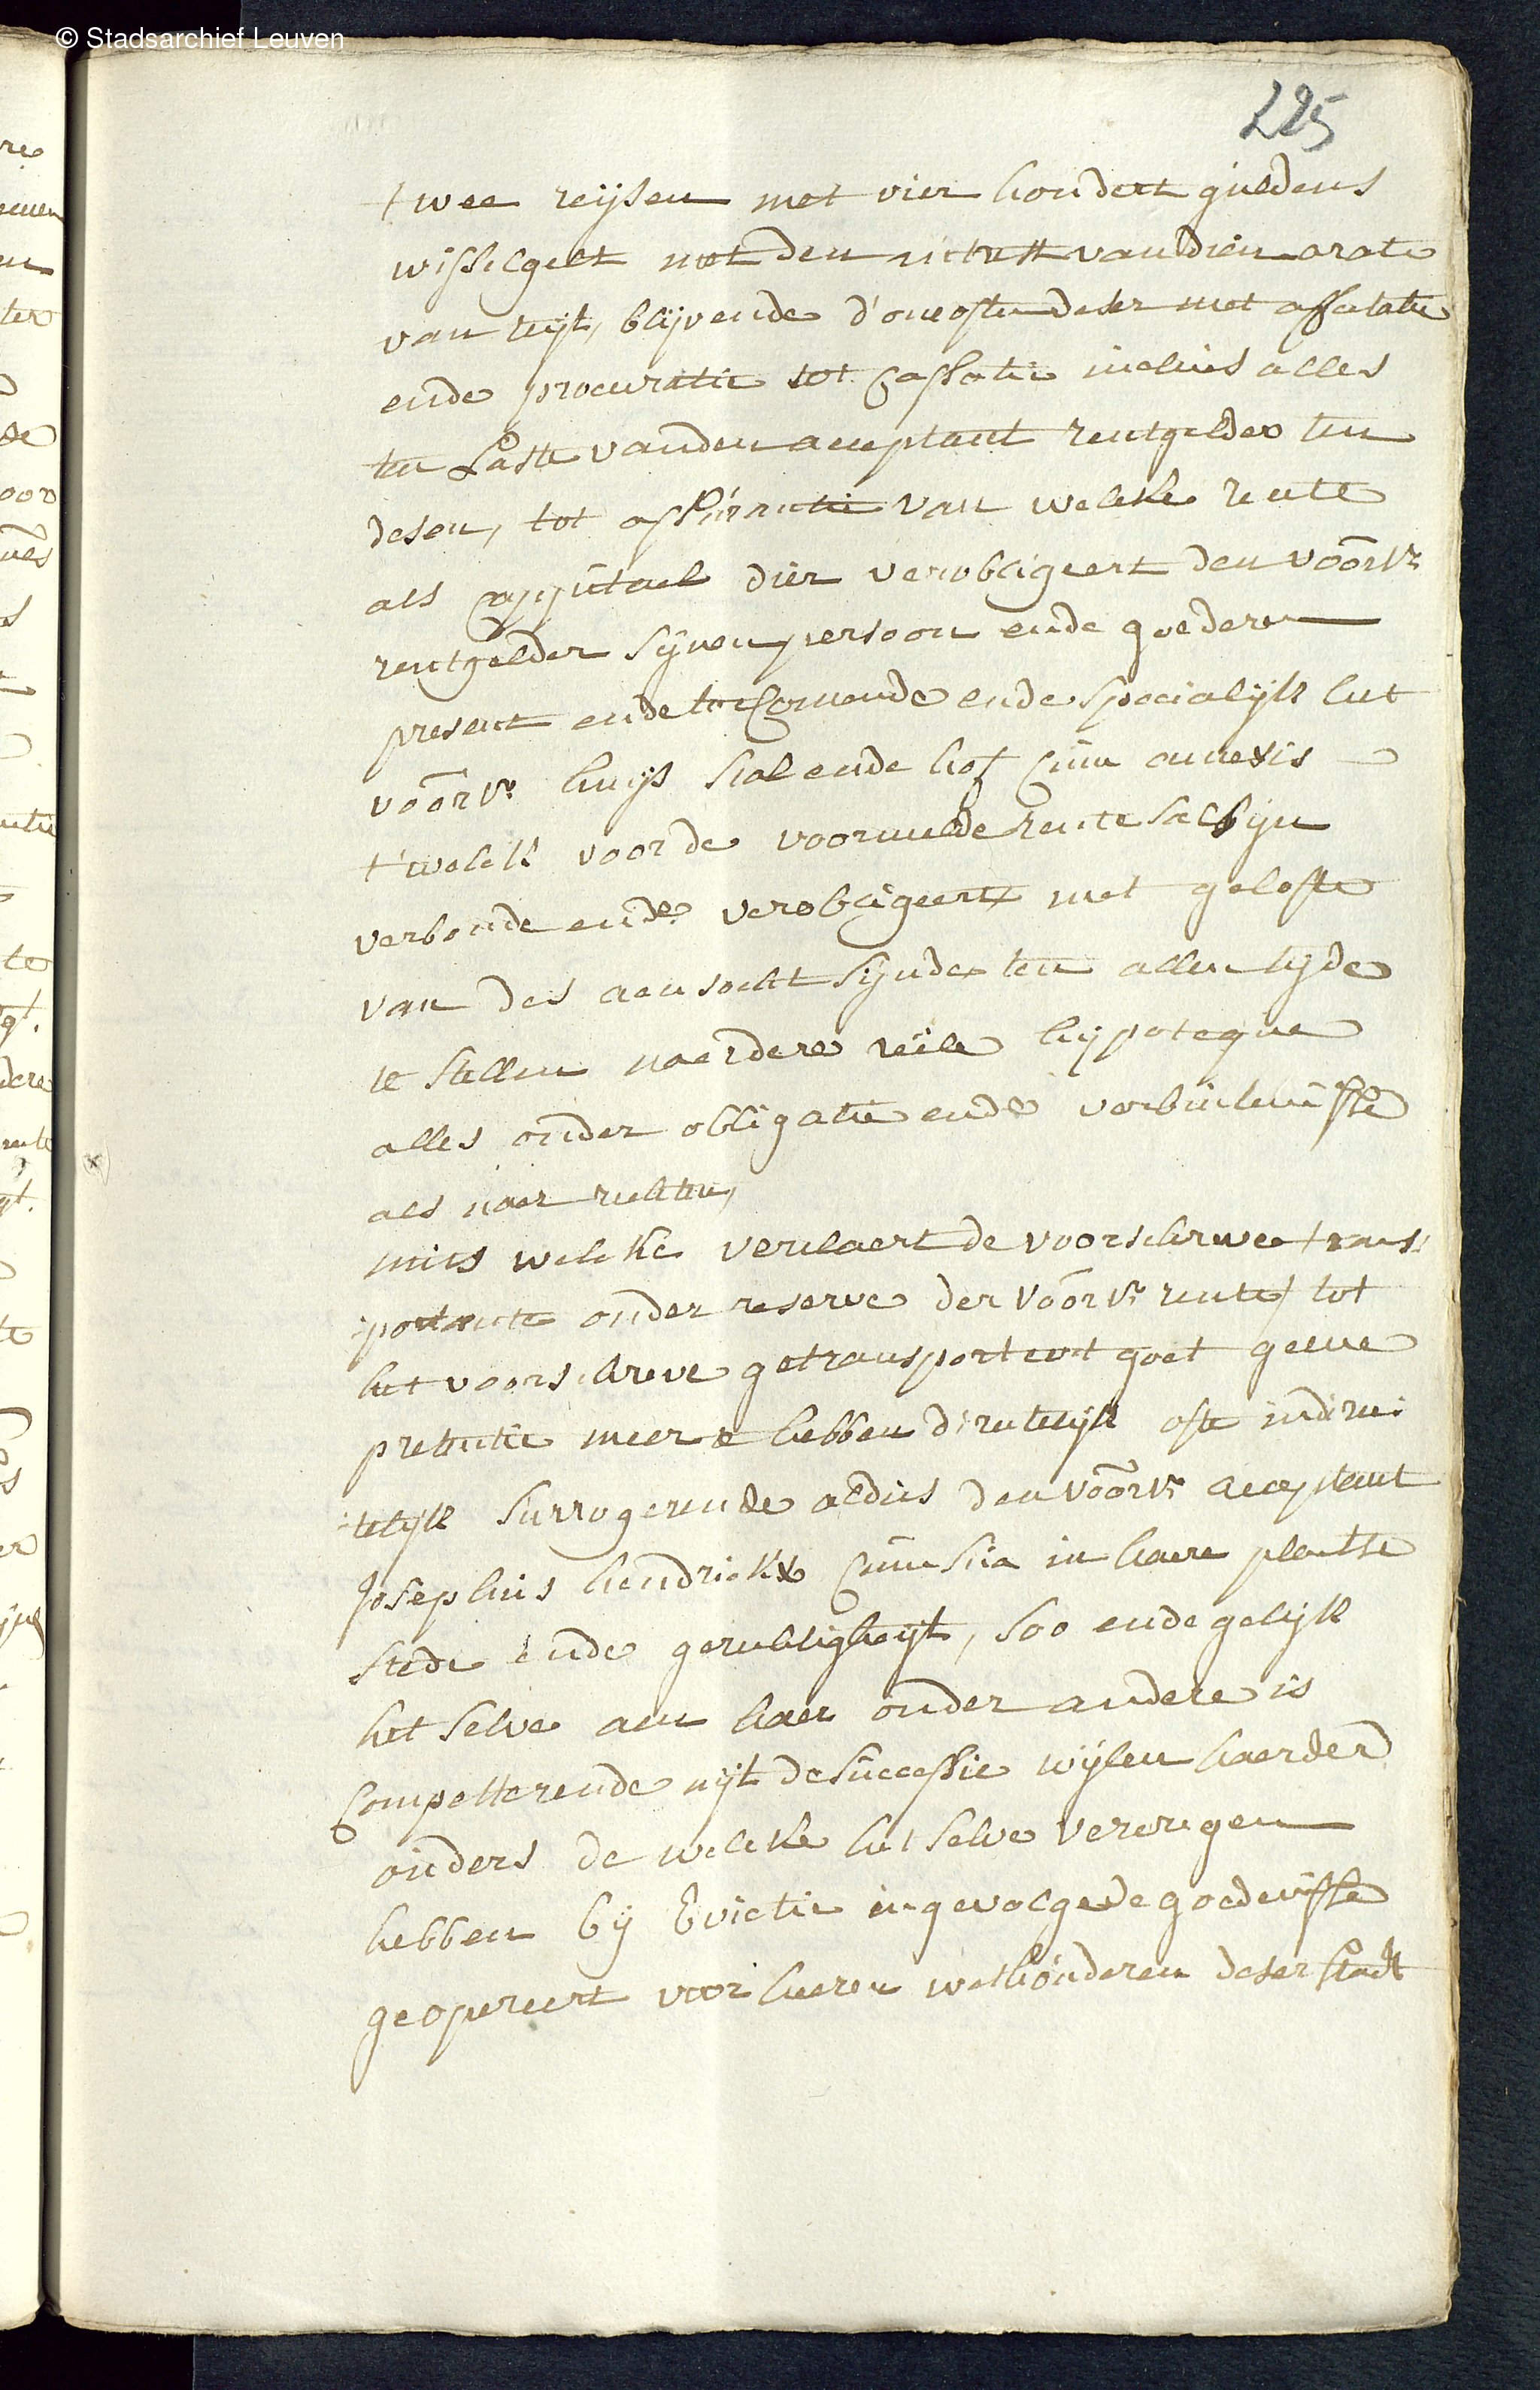 © Stadsarchief Leuven
225
twee reijsen met vier hondert guldens
wisselgelt met den intrest van dien arate
van tijt, blijvende d'oncosten deser met affectatie
ende procuratie tot cassatie incluis alles
ten Laste vanden acceptant rentgelder ten
desen, tot assurantie van welcke rente
als capitael dier verobligeert den voors:
rentgelder sijnen persoon ende goederen
present ende toecomende ende specialijk het
voors: huijs stal ende hof cum annexis
t'welck voor de voormelde rente sal sijn
verbonde ende verobligeert met gelofte
van des aensocht sijnde ten allen tijde
te stellen naerdere reële hijpoteque
alles onder obligatie ende verbintenisse
als naer rechten,
mits welcke verclaert de voorschreve trans:
:portante onder reserve der voors: rente, tot
het voorschreve getransporteert goet geene
pretentie meer te hebben directelijk ofte indirec:
:telijk surrogerende aldus den voors: acceptant
Josephus hendrickx cum sua in haere plaetse
stede ende gerechtigheijt, soo ende gelijk
het selve aen haer onder andere is
Competterende uijt de successie wijlen haerder
ouders de welcke het selve vercregen
hebben bij Evictie ingevolge de goedenisse
geopereert voor heeren wethouderen deser stadt